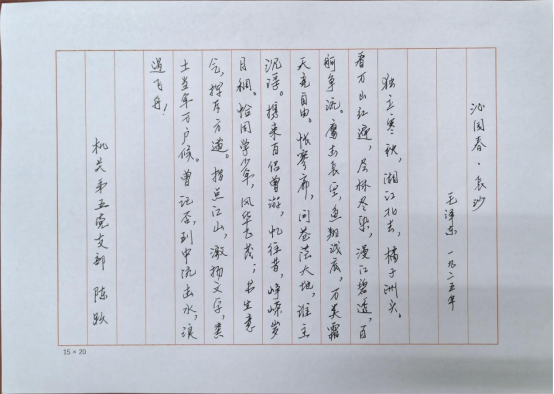 沁园春·长沙
毛泽东 一九二五年
独立寒秋，湘江北去，橘子洲头。
看万山红遍，层林尽染，漫江碧透，百
舸争流。鹰击长空，鱼翔浅底，万类霜
天竞自由。怅寥廓，问苍茫大地，谁主
沉浮。携来百侣曾游，忆往昔，峥嵘岁
月稠。恰同学少年，风华正茂；书生意
气，挥斥方遒。指点江山，激扬文字，粪
土当年万户侯。曾记否，到中流击水，浪
遏飞舟！
机关第五党支部 陈跃
15×20